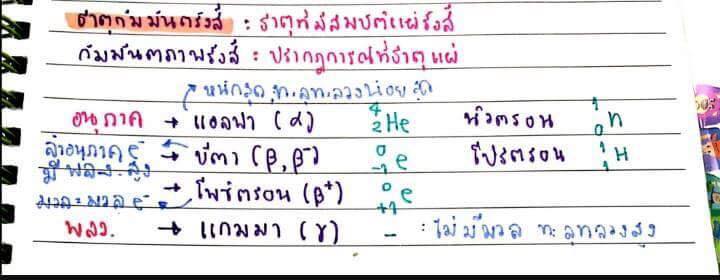 ธาตุกัมมันตรังสี : ธาตุที่มีสมบัติแผ่รังสี
กัมมันตภาพรังสี : ปรากฎการณ์ที่ธาตุแผ่
หนักสุด, ทะลุทะลวงน้อยสุด
อนุภาค → แอลฟา (α) 4 2 He นิวตรอน 1 0 n
ลำอนุภาค e⁻ บีตา (β, β⁻) 0 -1 e โปรตรอน 1 1 H
มีพลัง. สูง
มวล = มวล e⁻ → โพซิตรอน (β⁺) 0 +1 e
พลัง. → แกมมา (γ) - : ไม่มีมวล ทะลุทลวงสูง